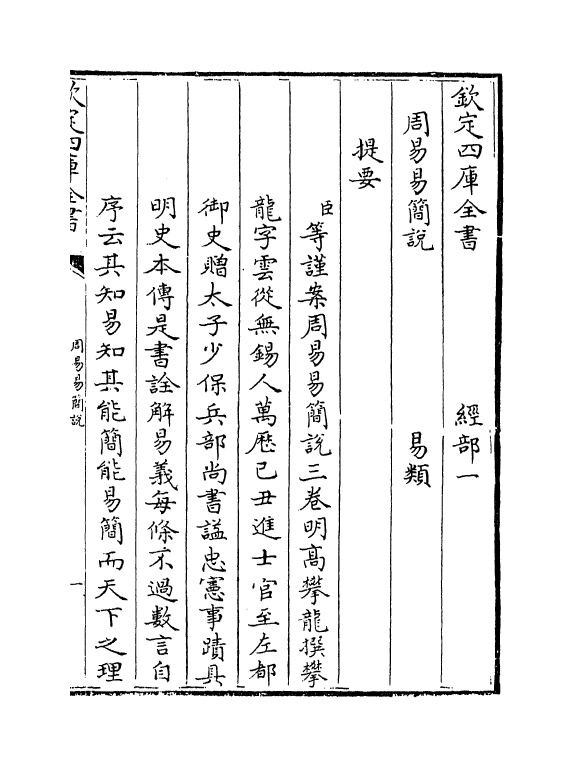 欽定四庫全書　經部一
周易易簡說　易類
提要
臣等謹案周易易簡說三卷明高攀龍撰攀
龍字雲從無錫人萬歷己丑進士官至左都
御史贈太子少保兵部尚書謚忠憲事蹟具
明史本傳是書詮解易義每條不過數言自
序云其知易知其能簡能易簡而天下之理
欽定四庫全書
周易易簡說
一